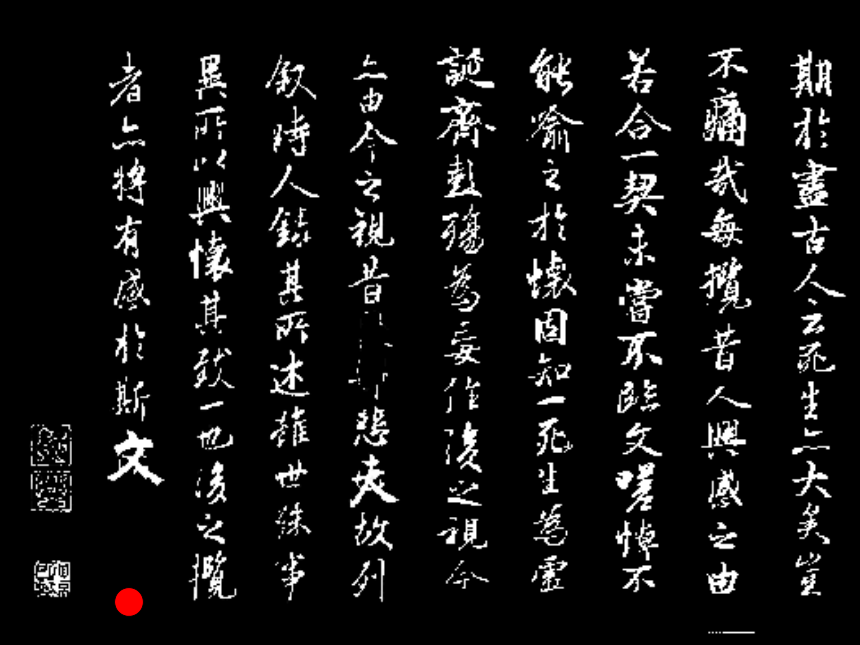 期於盡古人云死生亦大矣豈
不痛哉每攬昔人興感之由
若合一契未嘗不臨文嗟悼不
能喻之於懷固知一死生為虛
誕齊彭殤為妄作後之視今
亦由今之視昔悲夫故列
叙時人錄其所述雖世殊事
異所以興懷其致一也後之攬
者亦將有感於斯文